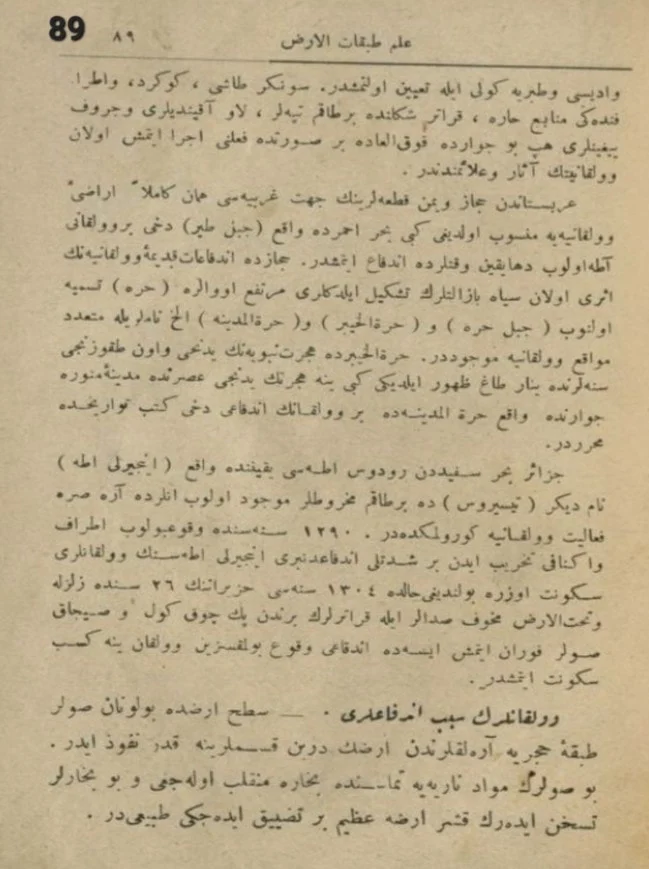 89 ٨٩ علم طبقات الارض
واديسی وطبریه کولی ایله تعیین اولنمشدر. سونکر طاشی ، کوکرد، واطرا
فنده‌کی منابع حاره ، قراتر شکلنده برطاقم تپه‌لر ، لاو آقیندیلری وجروف
ییغینلری هپ بو جوارده فوق‌العاده بر صورتده فعلنی اجرا ایتمش اولان
وولقانیتك آثار وعلائمندندر .
عربستاندن حجاز ویمن قطعه‌لرینك جهت غربیه‌سی همان کاملاً اراضیٔ
وولقانیه‌یه منسوب اولدیغی کبی بحر احمرده واقع (جبل طیر) دخی بروولقانی
آطه‌اولوب دهایقین وقتلرده اندفاع ایتمشدر. حجازده اندفاعات‌قدیمهٔ‌وولقانیه‌نك
اثری اولان سیاه بازالتلرك تشکیل ایلدکلری مرتفع اووالره ( حره ) تسمیه
اولنوب ( جبل حره ) و ( حرة‌الخیبر ) و( حرة‌المدینه ) الخ ناملریله متعدد
مواقع وولقانیه موجوددر. حرة‌الخیبرده هجرت‌نبویه‌نك یدنجی واون طقوزنجی
سنه‌لرنده ینار طاغ ظهور ایلدیکی کبی ینه هجرتك یدنجی عصرنده مدینهٔ‌منوره
جوارنده واقع حرة المدینه‌ده بر وولقانك اندفاعی دخی کتب تواریخده
محرردر.
جزائر بحر سفیددن رودوس اطه‌سی یقیننده واقع ( اینجیرلی اطه )
نام دیکر ( نیسیروس ) ده برطاقم مخروطلر موجود اولوب انلرده آره صره
فعالیت وولقانیه کورولمکده‌در . ١٢٩٠ سنه‌سنده وقوعبولوب اطراف
واکنافی تخریب ایدن بر شدتلی اندفاعدنبری اینجیرلی اطه‌سنك وولقانلری
سکونت اوزره بولندیغی‌حالده ١٣٠٤ سنه‌سی حزیراننك ٢٦ سنده زلزله
وتحت‌الارض مخوف صدالر ایله قراترلرك برندن پك چوق کول و صیجاق
صولر فوران ایتمش ایسه‌ده اندفاعی وقوع بولمقسزین وولقان ینه کسب
سکونت ایتمشدر .
وولقانلرك سبب اندفاعلری . — سطح ارضده بولونان صولر
طبقهٔ حجریه آره‌لقلرندن ارضك درین قسملرینه قدر نفوذ ایدر .
بو صولرك مواد ناریه‌یه تماسنده بخاره منقلب اوله‌جغی و بو بخارلر
تسخن ایده‌رك قشر ارضه عظیم بر تضییق ایده‌جکی طبیعی‌در .